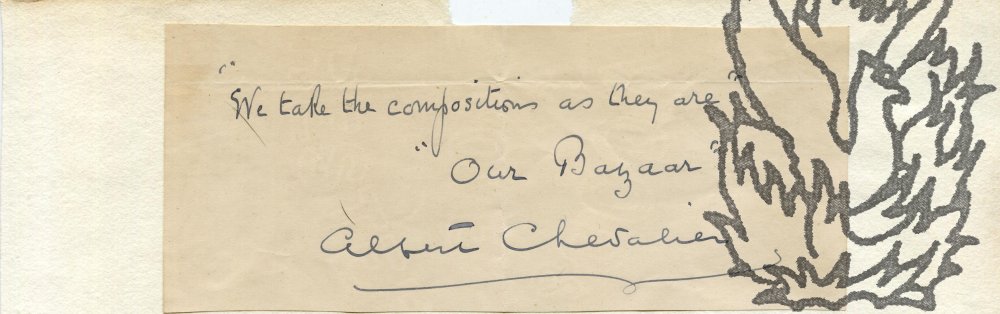 "We take the compositions as they are"
"Our Bazaar"
Albert Chevalier